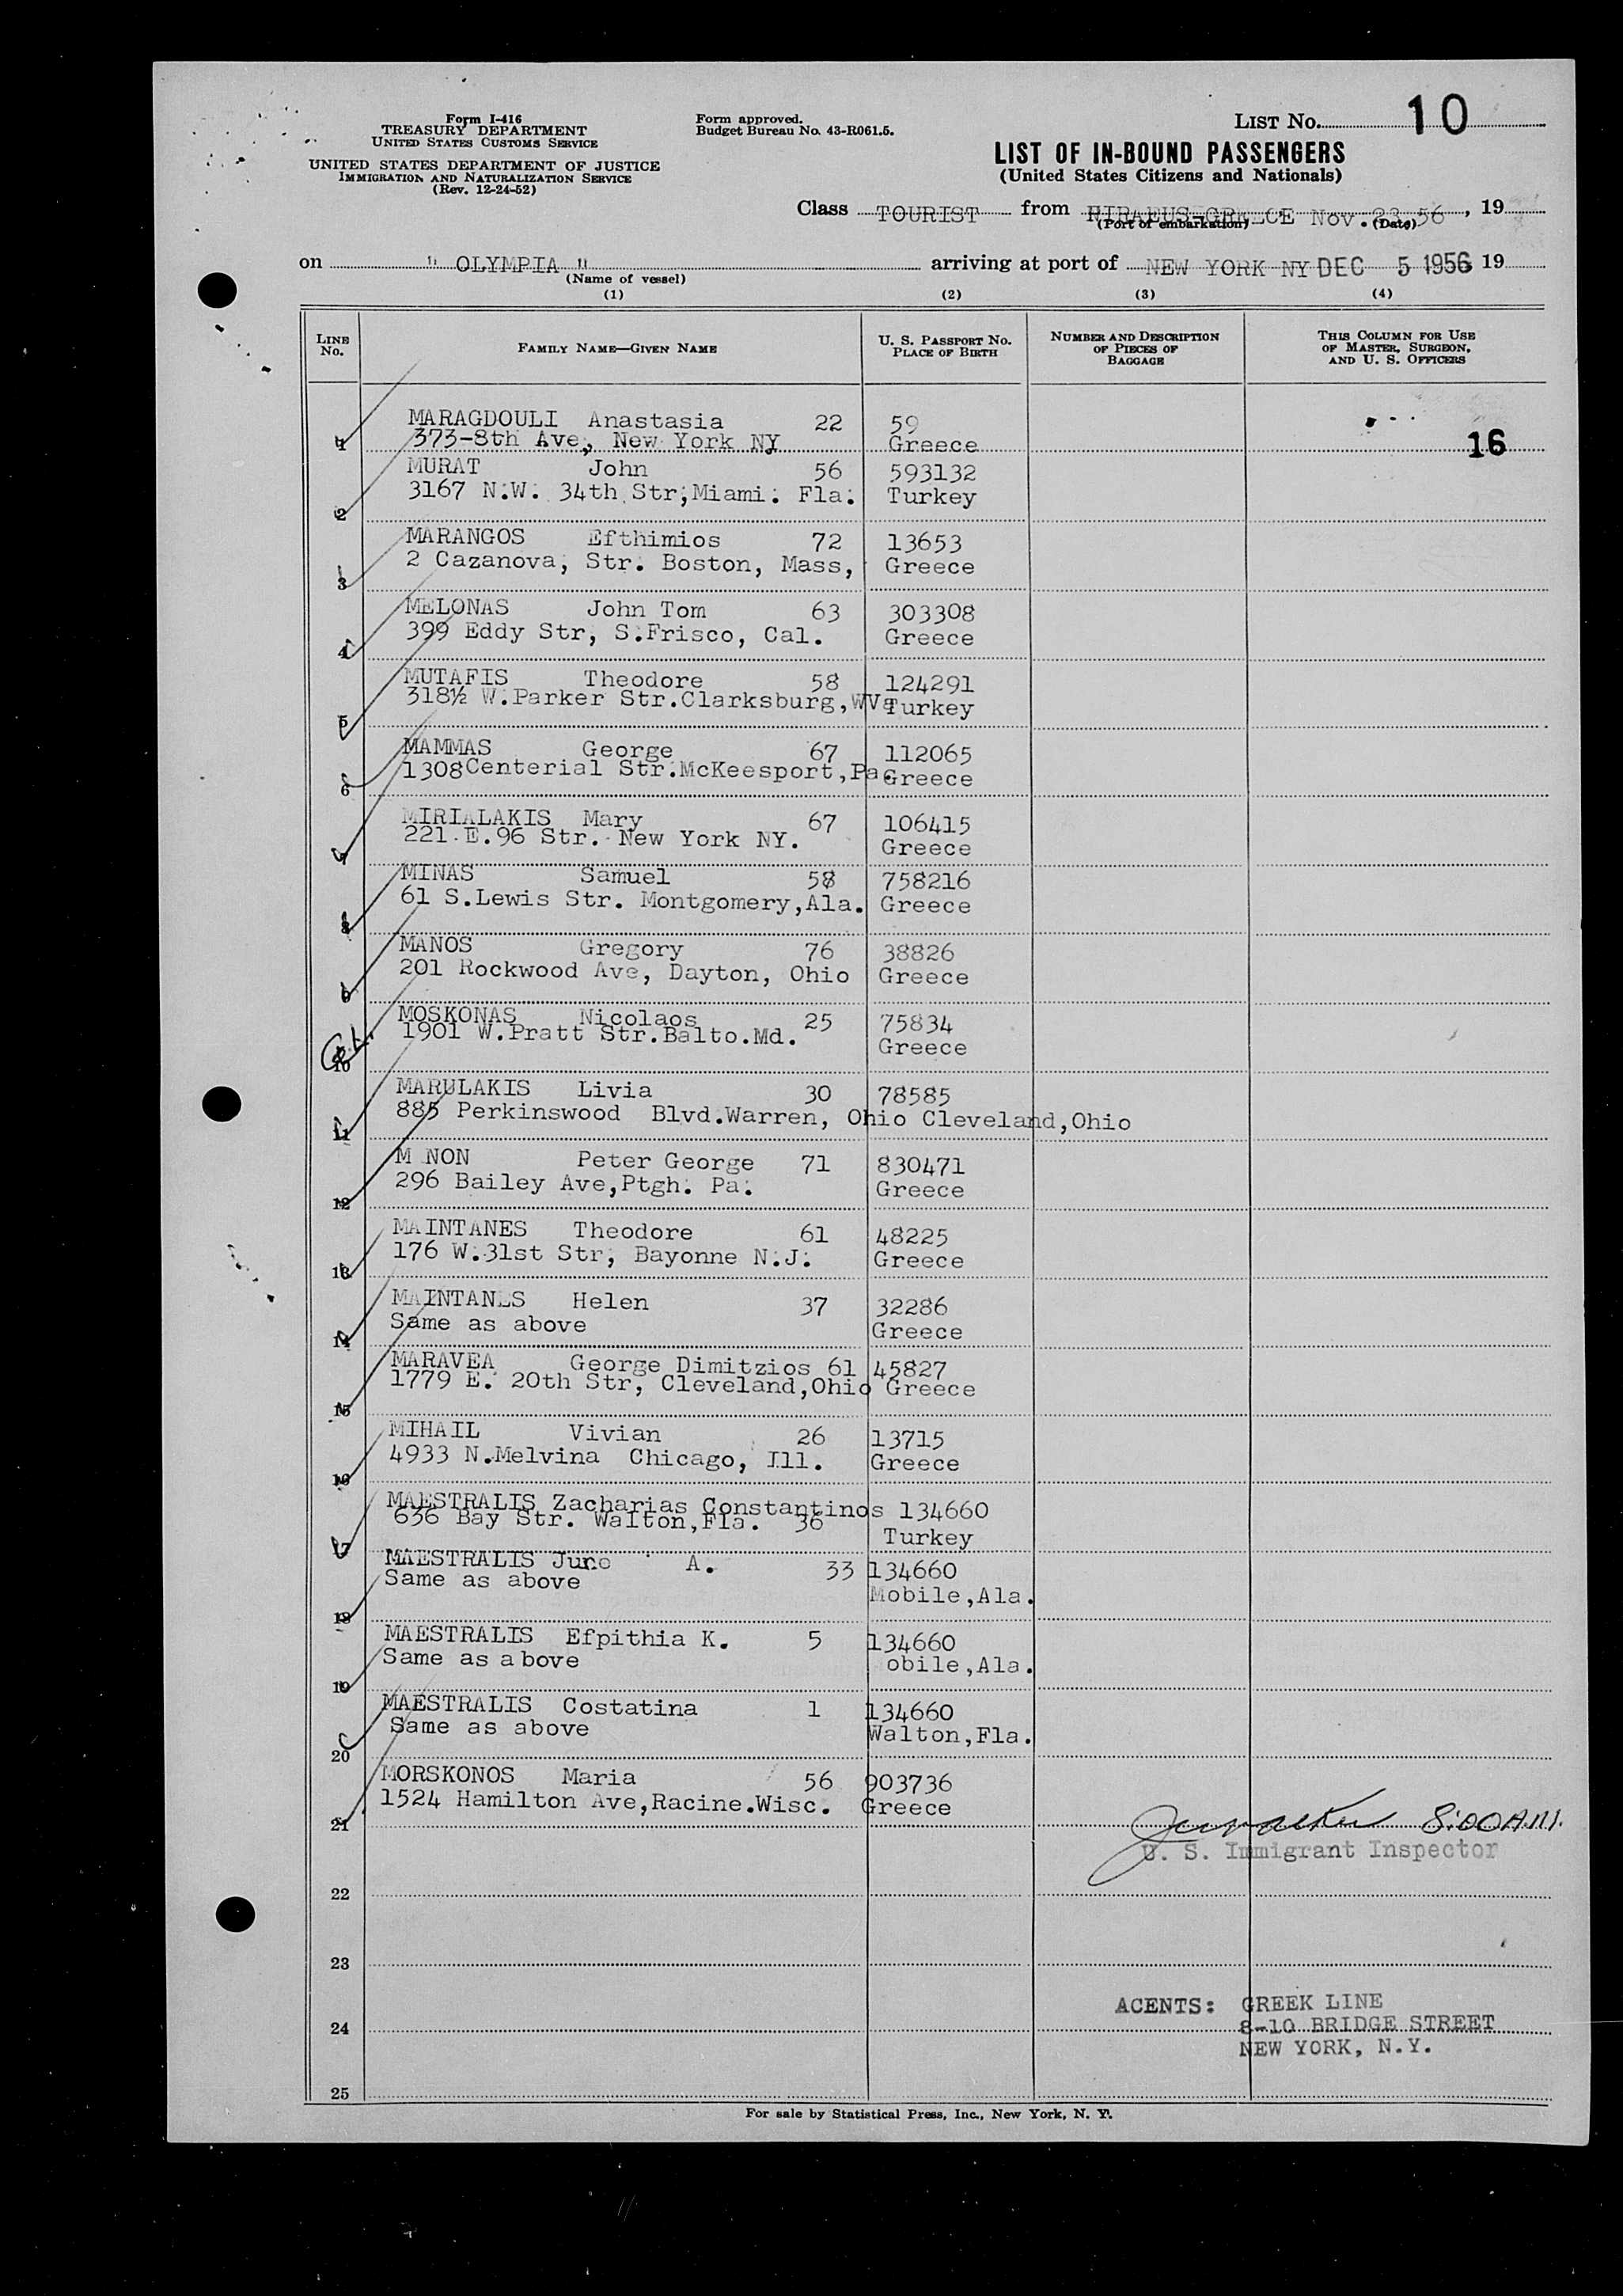 Form I-416
TREASURY DEPARTMENT
UNITED STATES CUSTOMS SERVICE
UNITED STATES DEPARTMENT OF JUSTICE
IMMIGRATION AND NATURALIZATION SERVICE
(Rev. 12-24-52)
Form approved.
Budget Bureau No. 43-R061.5.
LIST No. 10
LIST OF IN-BOUND PASSENGERS
(United States Citizens and Nationals)
Class TOURIST from Nov. 23, 56, 19
(Port of embarkation) (Date)
on " OLYMPIA " arriving at port of NEW YORK NY DEC 5 1956 19
(Name of vessel)
(1) (2) (3) (4)
LINE No. FAMILY NAME—GIVEN NAME U. S. PASSPORT NO. PLACE OF BIRTH NUMBER AND DESCRIPTION OF PIECES OF BAGGAGE THIS COLUMN FOR USE OF MASTER, SURGEON, AND U. S. OFFICERS
MARAGDOULI Anastasia 22 59
1 373-8th Ave, New York NY Greece 16
MURAT John 56 593132
3167 N.W. 34th Str,Miami. Fla. Turkey
2
MARANGOS Efthimios 72 13653
2 Cazanova, Str. Boston, Mass, Greece
3
MELONAS John Tom 63 303308
399 Eddy Str, S.Frisco, Cal. Greece
4
MUTAFIS Theodore 58 124291
318½ W.Parker Str.Clarksburg,WVa Turkey
5
MAMMAS George 67 112065
1308Centerial Str.McKeesport,Pa. Greece
6
MIRIALAKIS Mary 67 106415
221 E.96 Str. New York NY. Greece
7
MINAS Samuel 58 758216
61 S.Lewis Str. Montgomery,Ala. Greece
8
MANOS Gregory 76 38826
201 Rockwood Ave, Dayton, Ohio Greece
9
MOSKONAS Nicolaos 25 75834
1901 W.Pratt Str.Balto.Md. Greece
10
MARULAKIS Livia 30 78585
885 Perkinswood Blvd.Warren, Ohio Cleveland,Ohio
11
M NON Peter George 71 830471
296 Bailey Ave,Ptgh. Pa. Greece
12
MAINTANES Theodore 61 48225
176 W.31st Str, Bayonne N.J. Greece
13
MAINTANES Helen 37 32286
Same as above Greece
14
MARAVEA George Dimitzios 61 45827
1779 E. 20th Str, Cleveland,Ohio Greece
15
MIHAIL Vivian 26 13715
4933 N.Melvina Chicago, Ill. Greece
16
MAESTRALIS Zacharias Constantinos 134660
636 Bay Str. Walton,Fla. 36 Turkey
17
MAESTRALIS June A. 33 134660
Same as above Mobile,Ala.
18
MAESTRALIS Efpithia K. 5 134660
Same as above obile,Ala.
19
MAESTRALIS Costatina 1 134660
Same as above Walton,Fla.
20
MORSKONOS Maria 56 903736
1524 Hamilton Ave,Racine.Wisc. Greece
21 8:00 A.M.
U. S. Immigrant Inspector
22
23
ACENTS: GREEK LINE
24 8-10 BRIDGE STREET
NEW YORK, N.Y.
25
For sale by Statistical Press, Inc., New York, N. Y.